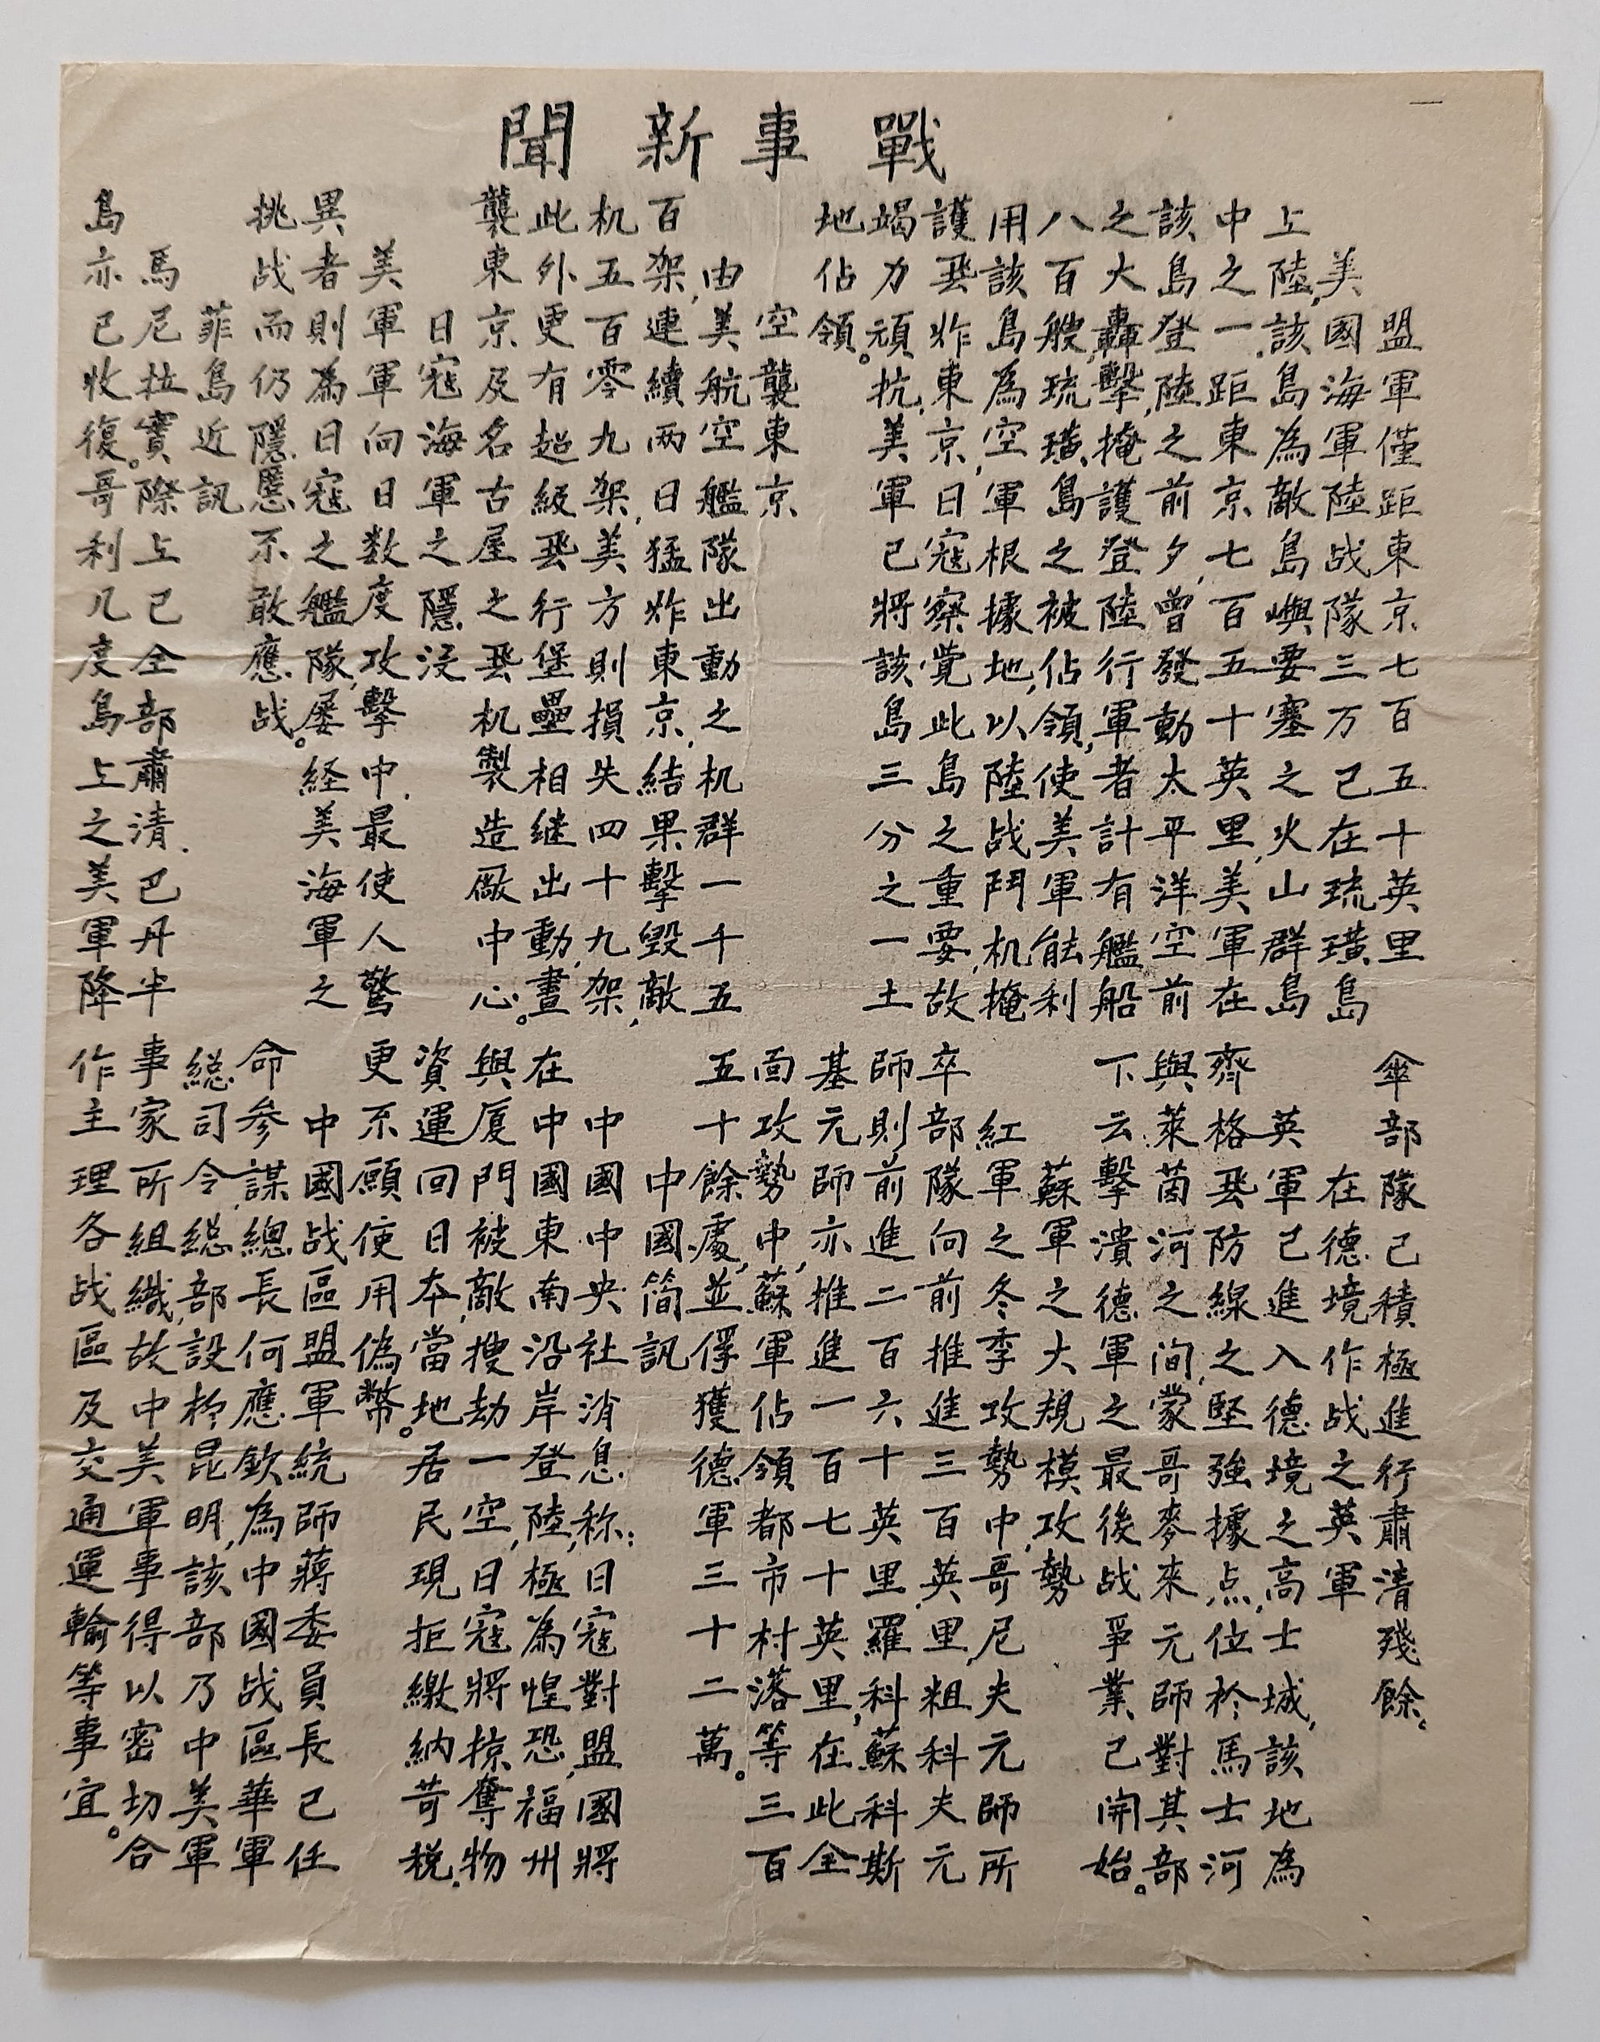 一
戰事新聞
盟軍僅距東京七百五十英里
美國海軍陸战隊三万已在琉璜島
上陸,該島為敵島嶼要塞之火山群島
中之一.距東京七百五十英里,美軍在
該島登陸.之前夕,曾發動太平洋空前
之大轟擊,掩護登陸行軍者計有艦船
八百艘,琉璜島之被佔領,使美軍能利
用該島為空軍根據地,以陸战鬥机掩
護飛炸東京,日寇察覚此島之重要,故
竭力頑抗,美軍已將該島三分之一土
地佔領。
空襲東京
由美航空艦隊出動之机群一千五
百架,連續兩日猛炸東京,結果擊毀敵
机五百零九架,美方則損失四十九架,
此外更有超級飛行堡壘相継出動,晝
襲東京及名古屋之飛机製造廠中心。
日寇海軍之隱沒
美軍軍向日数度攻擊中,最使人驚
異者則為日寇之艦隊,屡経美海軍之
挑战而仍隱匿不敢應战。
菲島近訊
馬尼拉實際上已全部肅清.巴丹半
島亦已收復。哥利几度島上之美軍降
傘部隊已積極進行肅清殘餘。
在德境作战之英軍
英軍已進入德境之高士城,該地為
齊格飛防線之堅強據点,位於馬士河
與萊茵河之间,蒙哥麥来元師已對其部
下云擊潰德軍之最後战爭業已開始。
蘇軍之大規模攻勢
紅軍之冬季攻勢中,哥尼夫元師所
卒部隊向前推進三百英里,粗科夫元
師則前進二百六十英里,羅科蘇科斯
基元師亦推進一百七十英里,在此全
面攻勢中,蘇軍佔領都市村落等三百
五十餘處,並俘獲德軍三十二萬。
中國簡訊
中國中央社消息称:日寇對盟國將
在中國東南沿岸登陸,極為惶恐,福州
與厦門被敵搜劫一空,日寇將掠奪物
資運回日本,當地居民現拒繳納苛税.
更不願使用偽幣。
中國战區盟軍統師蔣委員長已任
命参謀總長何應欽為中國战區華軍
総司令,総部設於昆明,該部乃中美軍
事家所組織,故中美軍事得以密切合
作主理各战區及交通運輸等事宜。